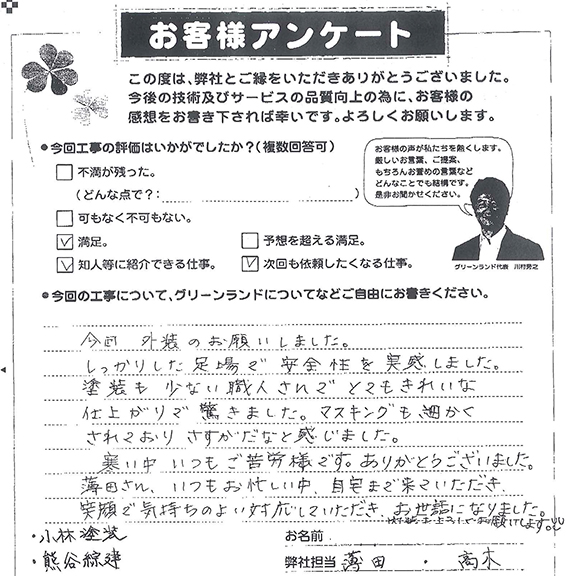 お客様アンケート
この度は、弊社とご縁をいただきありがとうございました。
今後の技術及びサービスの品質向上の為に、お客様の
感想をお書き下されば幸いです。よろしくお願いします。
●今回工事の評価はいかがでしたか?(複数回答可)
不満が残った。
(どんな点で?: )
可もなく不可もない。
満足。
予想を超える満足。
知人等に紹介できる仕事。
次回も依頼したくなる仕事。
お客様の声が私たちを熱くします。
厳しいお言葉、ご提案、
もちろんお誉めの言葉など
どんなことでも結構です。
是非お聞かせください。
グリーンランド代表
●今回の工事について、グリーンランドについてなどご自由にお書きください。
今回 外装のお願いしました。
しっかりした足場で安全性を実感しました。
塗装も少ない職人さんでとてもきれいな
仕上がりで驚きました。マスキングも細かく
されておりさすがだなと感じました。
寒い中いつもご苦労様です。ありがとうございました。
薄田さん、いつもお忙しい中、自宅まで来ていただき、
笑顔で気持ちのよい対応していただき、お世話になりました。
お願いします。
・小林塗装
・熊谷綜建
お名前
弊社担当 薄田 ・ 高木